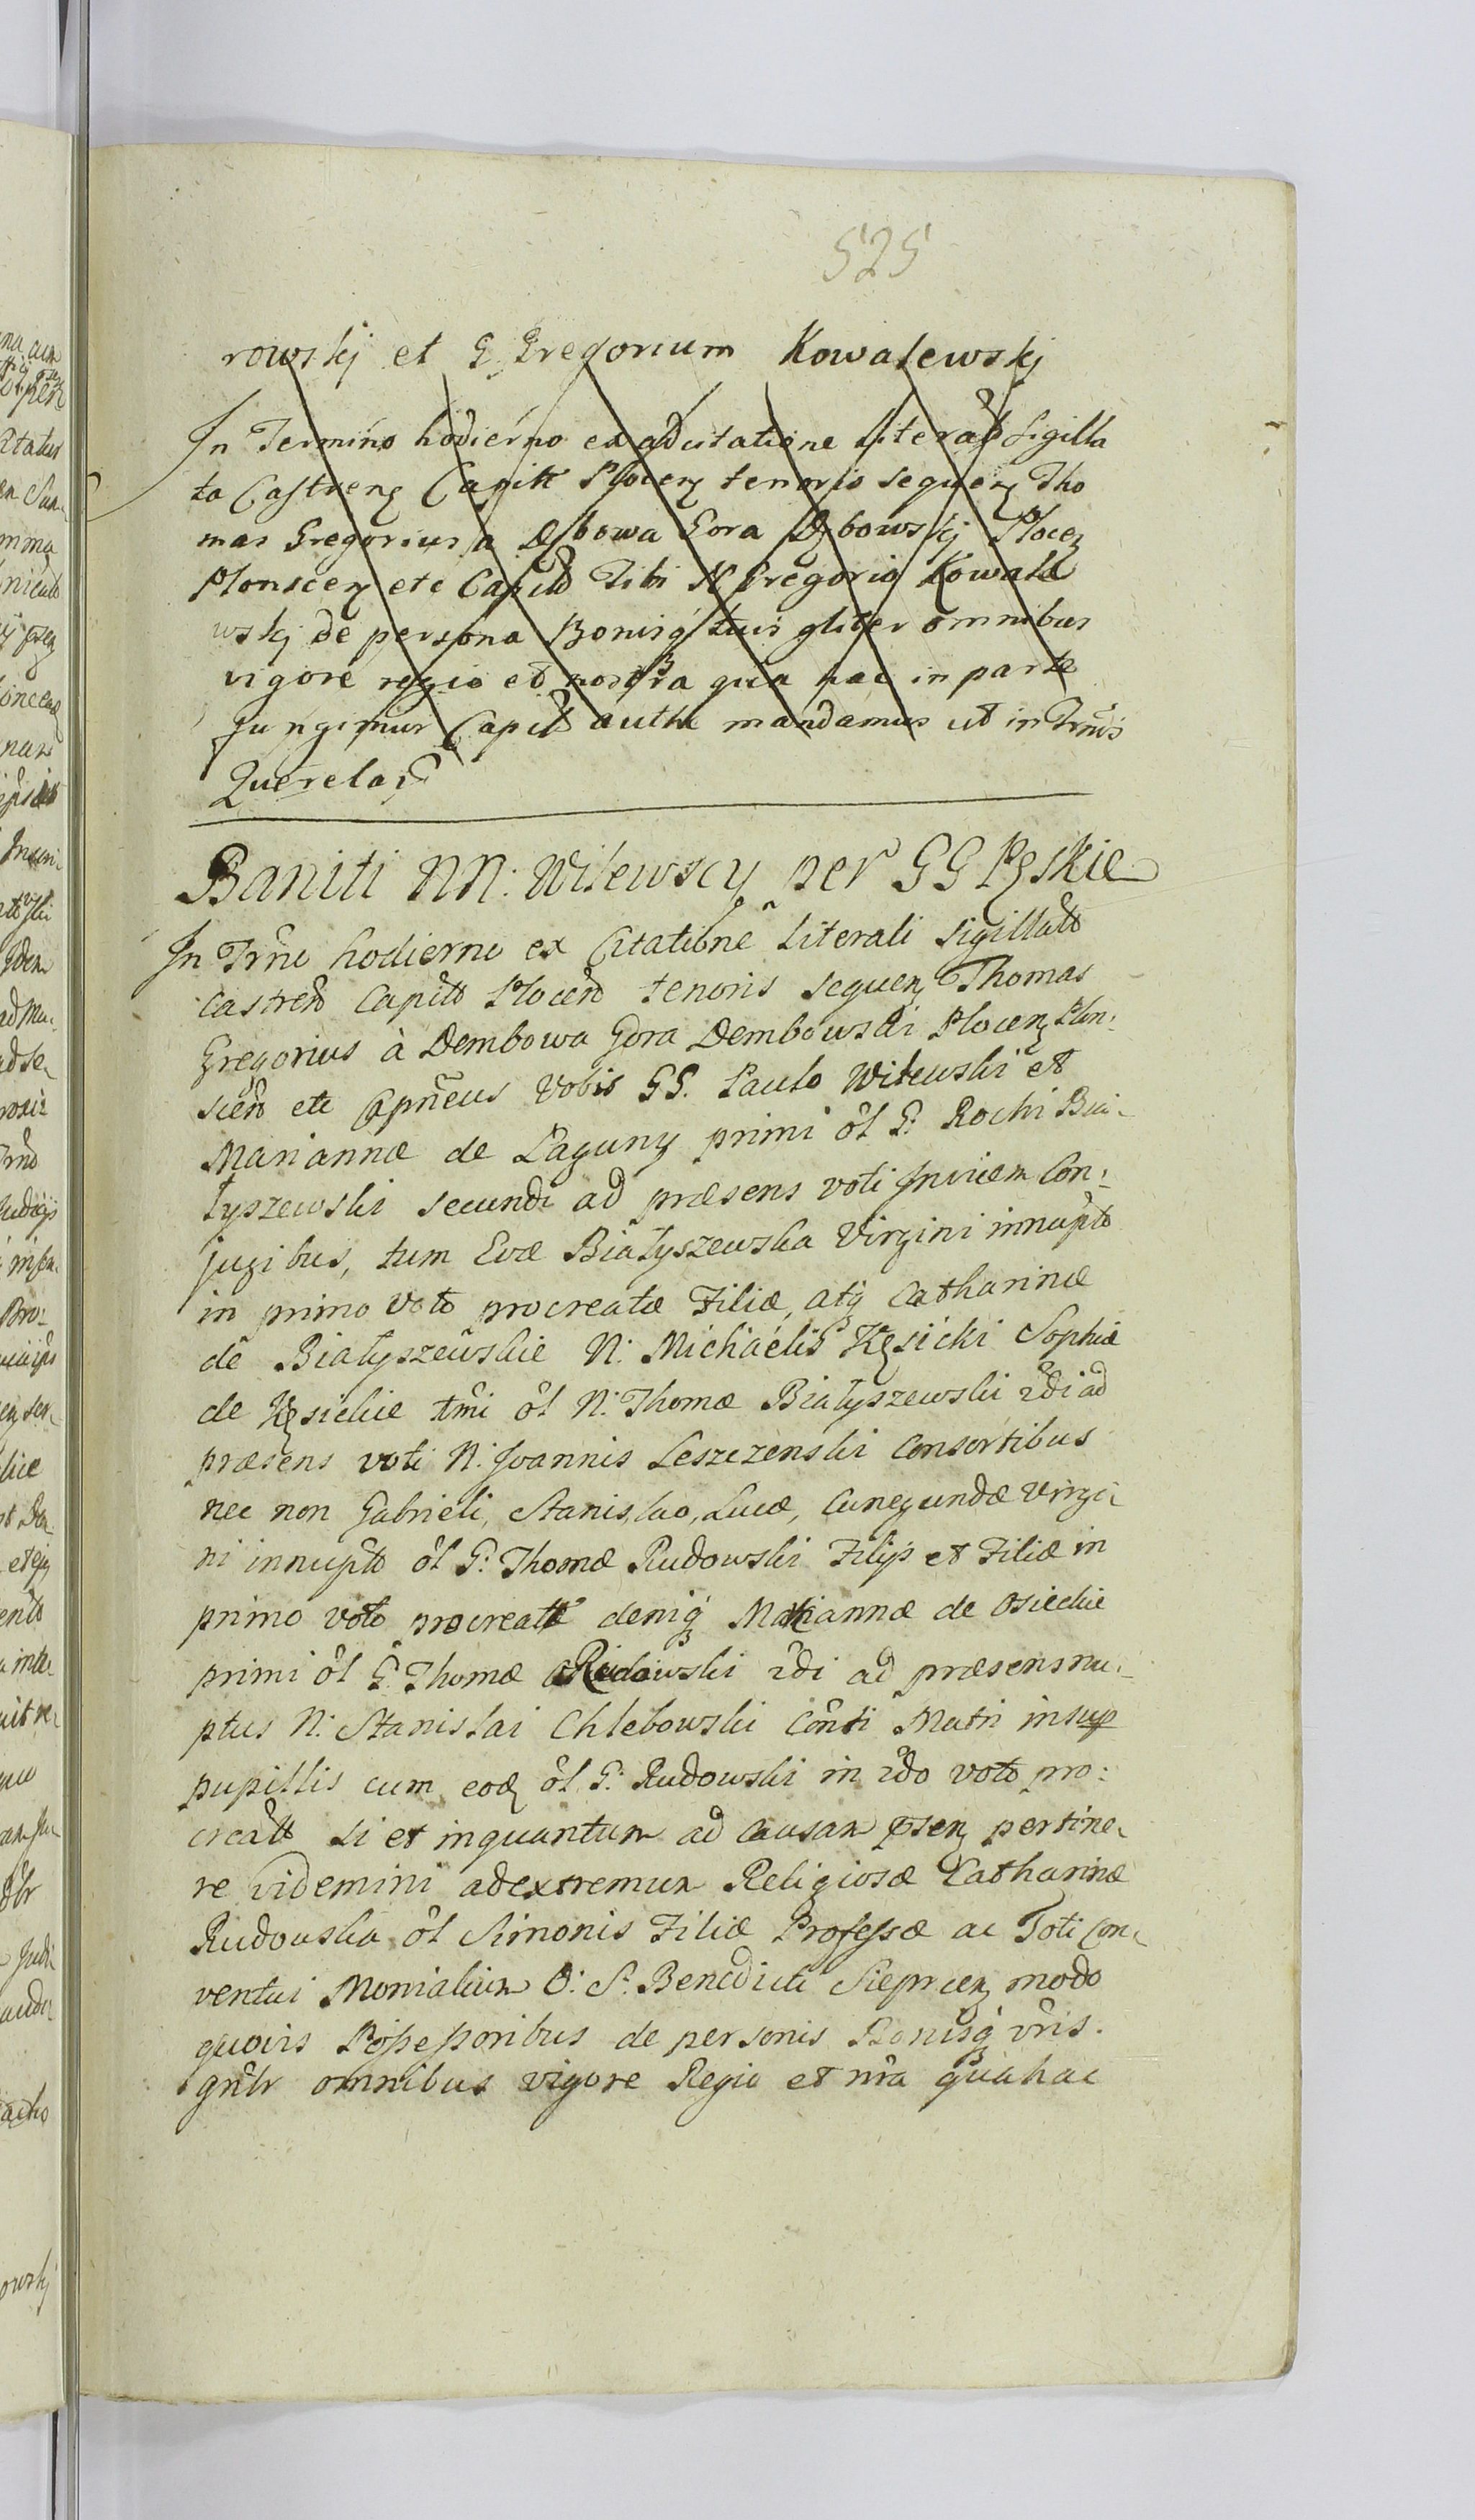 525
rowskj et G Gregorium Kowalewskj
In Termino hodierno ex adcitatione Literali Sigilla
ta Castrenʒ Capitt Plocenʒ tenoris sequenʒ Tho
mas Gregorius a Dębowa Gora Dębowskj Plocenʒ
Plonscenʒ etc Capitt Tibi N Gregorio Kowale
wskj de persona Bonisq tuis gliter omnibus
vigore regio et nostra qua hac in parte
fungimur Capitt autht mandamus ut in Trmis
Querelar
Baniti NN: Wilewscy per GG Pęskie
In Trno hodierno ex Citatione Literali Sigillatt
Castren Capitt Plocen tenoris sequenʒ Thomas
Gregorius à Dembowa Gora Dembowski Plocenʒ Plon:
scen etc Capneus Vobis GG. Paulo Wilewski et
Mariannæ de Łaguny primi ol G: Rochi Bia-
łyszewski secundi ad præsens voti Invicem Con:
jugibus, tum Evæ Białyszewska Virgini innupto
in primo voto procreatæ Filiæ, atq Catharinæ
de Białyszewskie N: Michaelis Kęsicki Sophiæ
de Kęsickie tmi ol N: Thomæ Białyszewski 2di ad
præsens voti N: Joannis Leszczenski Consortibus
nec non Gabrieli, Stanislao, Lucæ, Cunegundæ Virgi-
ni innupto ol G: Thomæ Rudowski Filijs et Filiæ in
primo voto procreatt deniq Mariannæ de Osieckie
primi ol G: Thomæ Rudowski 2di ad præsens nu-
ptus N: Stanislai Chlebowski Conti Matri insup
pupillis cum eodʒ ol G: Rudowski in 2do voto pro:
creatt si et inquantum ad causam psenʒ pertine-
re videmini ad extremum Religiosæ Catharinæ
Rudowska ol Simonis Filiæ Professæ ac Toti Con-
ventui Monialium O: S: Benedicti Sieprcenʒ modo
quovis Possessoribus de personis Bonisq vris.
gnlr omnibus vigore Regia et nra qua hac